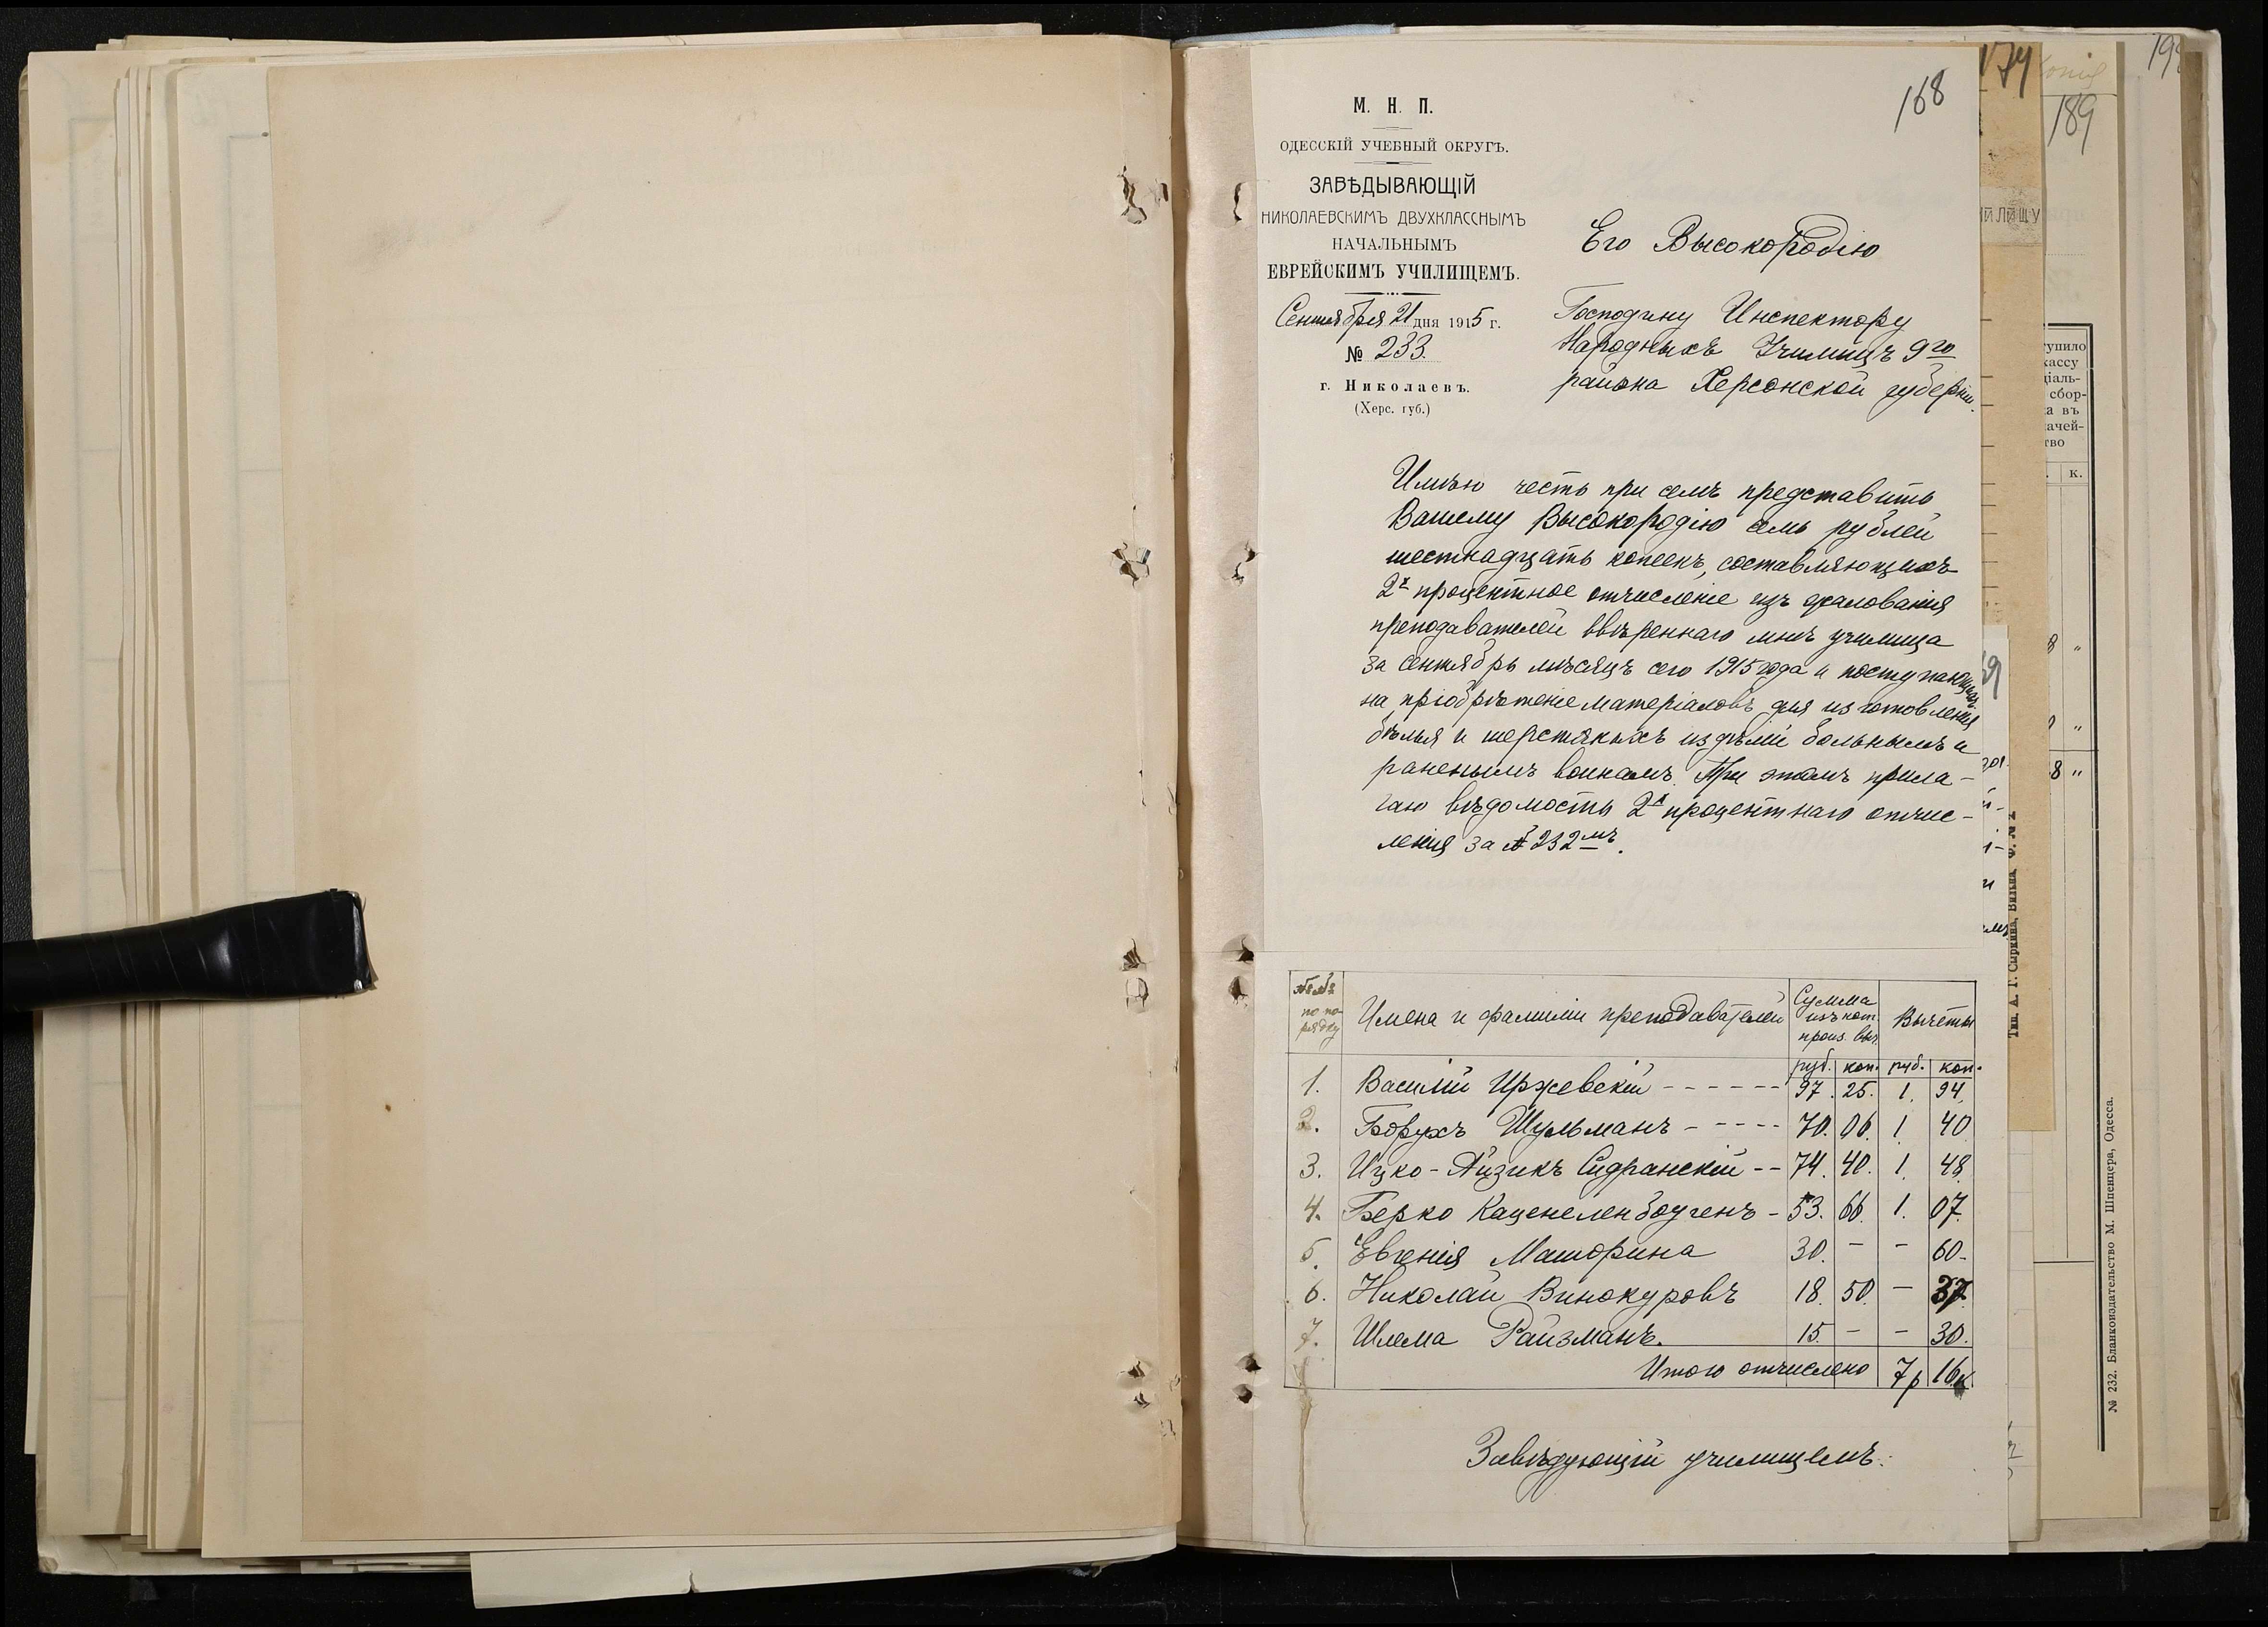 168
М. Н. П.
ОДЕССКІЙ УЧЕБНЫЙ ОКРУГЪ.
ЗАВѢДЫВАЮЩІЙ
НИКОЛАЕВСКИМЪ ДВУХКЛАССНЫМЪ
НАЧАЛЬНЫМЪ
ЕВРЕЙСКИМЪ УЧИЛИЩЕМЪ.
Сентября 21 дня 1915 г.
№ 233.
г. Николаевъ.
(Херс. губ.)
Его Высокородію
Господину Инспектору
Народныхъ Училищъ 9го
района Херсонской губерніи.
Имѣю честь при семъ представить
Вашему Высокородію семь рублей
шестнадцать копеекъ, составляющихъ
2х процентное отчисленіе изъ жалованія
преподавателей ввѣреннаго мнѣ училища
за сентябрь мѣсяцъ сего 1915 года и поступающихъ
на пріобрѣтеніе матеріаловъ для изготовленія
бѣлья и шерстяныхъ издѣлій больнымъ и
раненымъ воинамъ. При этомъ прила-
гаю вѣдомость 2х процентнаго отчис-
ленія за № 232мъ.
№№ по по-рядку Имена и фамиліи преподавателей Сумма изъ кот. произ. выч. Вычеты
руб. коп. руб. коп.
1. Василій Иржевскій ------ 97. 25. 1. 94.
2. Борухъ Шульманъ ----- 70. 06. 1. 40
3. Ицко-Айзикъ Сидранскій -- 74. 40. 1. 48.
4. Берко Каценеленбоугенъ - 53. 66. 1. 07.
5. Евгенія Машорина 30. - - 60-
6. Николай Винокуровъ 18. 50. - 37.
7. Шлема Райзманъ. 15. - - 30.
Итого отчислено 7р 16к.
Завѣдующій училищемъ:
174
189
тупило
кассу
ціаль-
сбор-
а въ
ачей-
тво
к.
8 "
Тип. А. Г. Сыркина, Вильна, Ф. № 2
№ 232. Бланкоиздательство М. Шпенцера, Одесса.